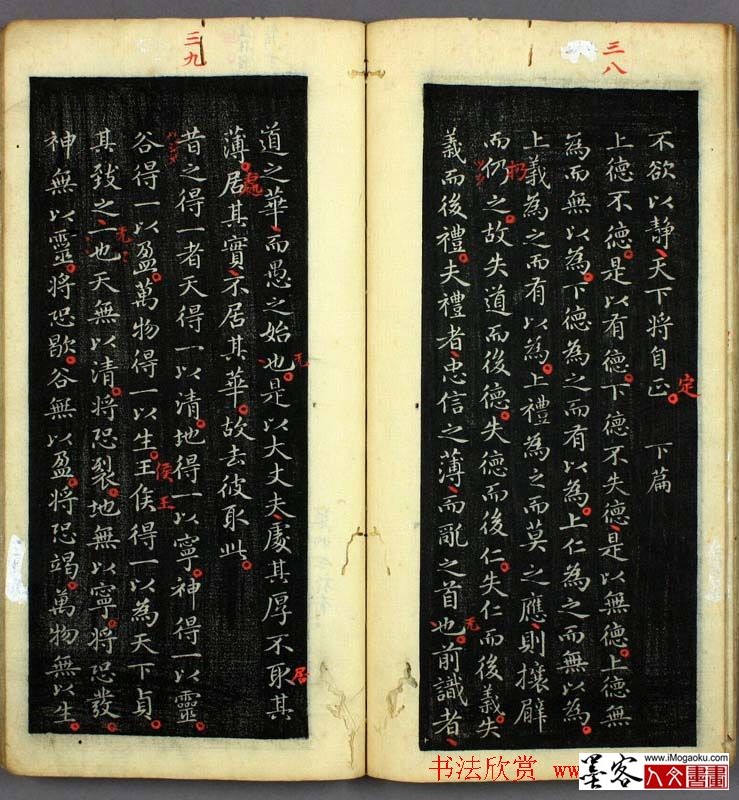 三八
不欲以靜天下將自正 下篇
定
上德不德是以有德下德不失德是以無德上德無
為而無以為下德為之而有以為上仁為之而無以為
上義為之而有以為上禮為之而莫之應則攘臂
扔
而仍之故失道而後德失德而後仁失仁而後義失
義而後禮夫禮者忠信之薄而亂之首也前識者
无
三九
道之華而愚之始也是以大丈夫處其厚不取其
无
居
薄居其實不居其華故去彼取此
處
昔之得一者天得一以清地得一以寧神得一以靈
谷得一以盈萬物得一以生王侯得一以為天下貞
侯王
其致之一也天無以清將恐裂地無以寧將恐發
无
神無以靈將恐歇谷無以盈將恐竭萬物無以生
书法欣赏 ww
墨客
www.iMogaoku.com
人文書畫